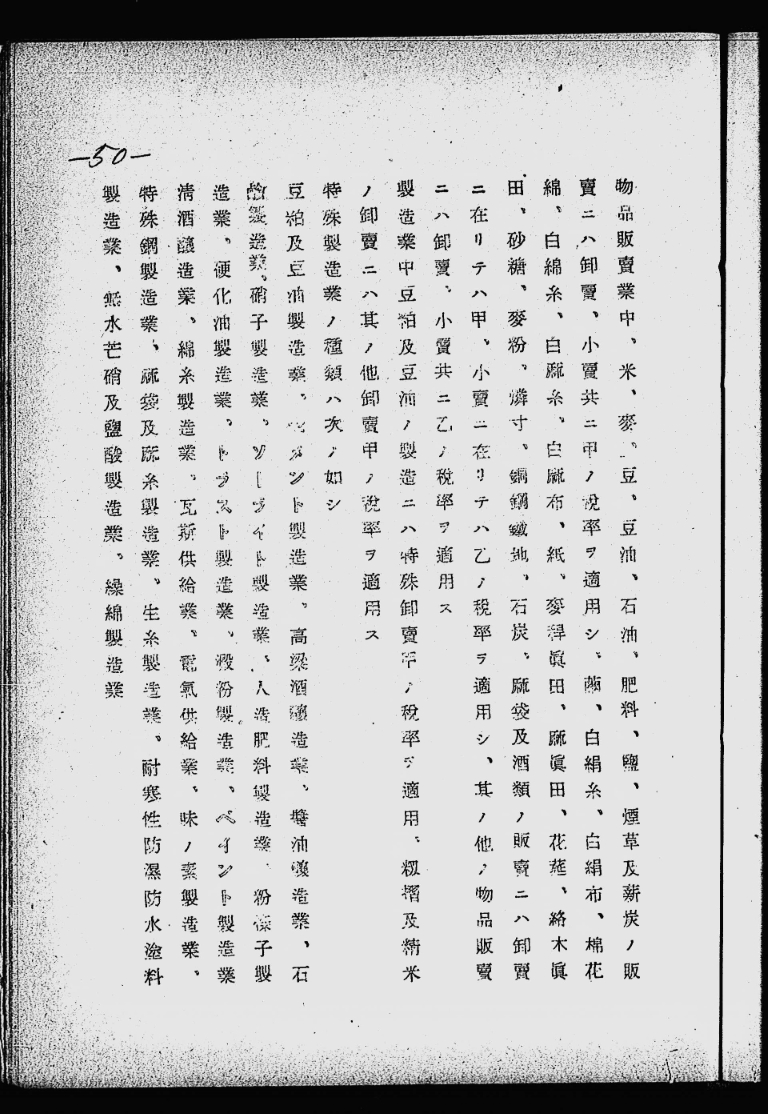 —50—
物品販賣業中、米、麥、豆、豆油、石油、肥料、鹽、煙草及薪炭ノ販
賣ニハ卸賣、小賣共ニ甲ノ稅率ヲ適用シ、繭、白絹糸、白絹布、棉花
綿、白綿糸、白麻糸、白麻布、紙、麥稈眞田、麻眞田、花莚、絡木眞
田、砂糖、麥粉、燐寸、銅鐵地、石炭、麻袋及酒類ノ販賣ニハ卸賣
ニ在リテハ甲、小賣ニ在リテハ乙ノ稅率ヲ適用シ、其ノ他ノ物品販賣
ニハ卸賣、小賣共ニ乙ノ稅率ヲ適用ス
製造業中豆粕及豆油ノ製造ニハ特殊卸賣甲ノ稅率ヲ適用、籾摺及精米
ノ卸賣ニハ其ノ他卸賣甲ノ稅率ヲ適用ス
特殊製造業ノ種類ハ次ノ如シ
豆粕及豆油製造業、セメント製造業、高粱酒釀造業、醬油釀造業、石
鹼製造業、硝子製造業、ソーライト製造業、人造肥料製造業、粉條子製
造業、硬化油製造業、トラスト製造業、澱粉製造業、ペイント製造業
淸酒釀造業、綿糸製造業、瓦斯供給業、電氣供給業、味ノ素製造業、
特殊鋼製造業、麻袋及麻糸製造業、生糸製造業、耐寒性防濕防水塗料
製造業、無水芒硝及鹽酸製造業、繰綿製造業